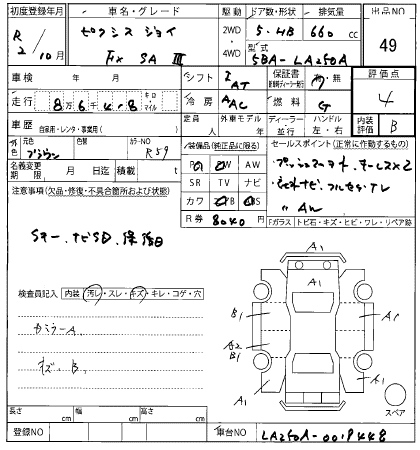 初度登録年月 車名・グレード 駆動 ドア数・形状 排気量 出品NO
R 2/10月 ピクシス ジョイ 2WD・4WD 5・HB 660 cc
Fix SA III 型式 5BA-LA250A 49
車検 年 月 シフト I AT 保証書 有・無 評価点
走行 8万6千4・8 キロ マイル 冷房 AAC 燃料 G 4
車歴 自家用・レンタ・事業用( ) 定員 人 外車モデル 年 ディーラー 並行 ハンドル 左・右 内装評価 B
外色 元色 ブラウン 色替 カラーNO R59 装備品(純正品に限る) セールスポイント(正常に作動するもの)
名義変更期限 月 日迄 積載 t PS PW AW プッシュスタート、キーレス×2
注意事項(欠品・修復・不具合箇所および状態) SR TV ナビ
ナビ フルセグTV
カワ AB
〃 AW
Sキー、ナビSD、保 R券 8040円 Fガラス トビ石・キズ・ヒビ・ワレ・リペア跡
A1
検査員記入 内装 汚レ・スレ・キズ・キレ・コゲ・穴
B1 A1
カミラーA
A2
B1
キズ、B、
A1 A1
スペア
長さ cm 幅 cm 高さ cm A1
登録NO 車台NO LA250A-0019448